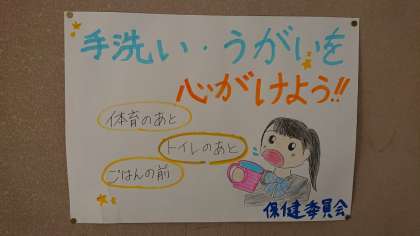 手洗い・うがいを
心がけよう!!
体育のあと
トイレのあと
ごはんの前
保健委員会